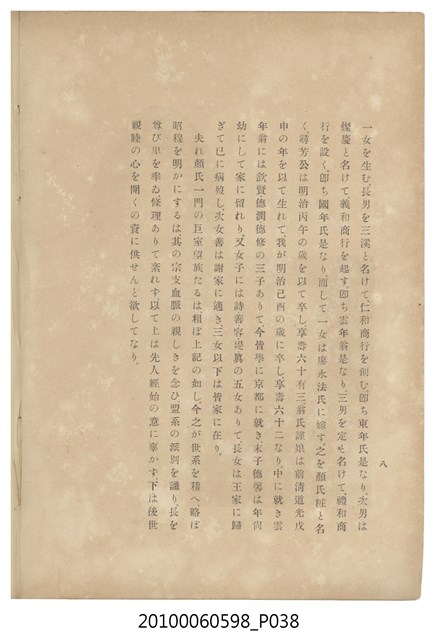 一女を生む、長男を三溪と名けて、仁和商行を創む、卽ち東年氏是なり、次男は
慶と名けて義和商行を起す、卽ち雲年翁是なり、三男を定と名けて、禮和商
行を設く、卽ち國年氏是なり、而して一女は廖永法氏に嫁す、之を顏氏と名
く、尋芳公は明治丙午の歲を以て卒し、享壽六十有三、翁氏謹娘は前淸道光戊
申の年を以て生れて、我が明治己酉の歲に卒し、享壽六十二なり、中に就き雲
年翁には欽賢德潤德修の三子ありて今皆學に京都に就き、末子德馨は年尙
幼にして家に留れり、又女子には詩善容眞の五女ありて、長女は王家に歸
ぎて已に病歿し、次女善は謝家に適き三女以下は皆家に在り。
夫れ顏氏一門の巨室望族たるは、粗ぼ上記の如し、今之が世系を稽へ略ぼ
昭穆を明かにするは、其の宗支血脈の親しきを念ひ盟系の派別を識り、長を
尊び卑を率ゐ條理ありて紊れず、以て上は先人經始の意に辜かず、下は後世
親睦の心を開くの資に供せんと欲してなり。
八
20100060598_P038